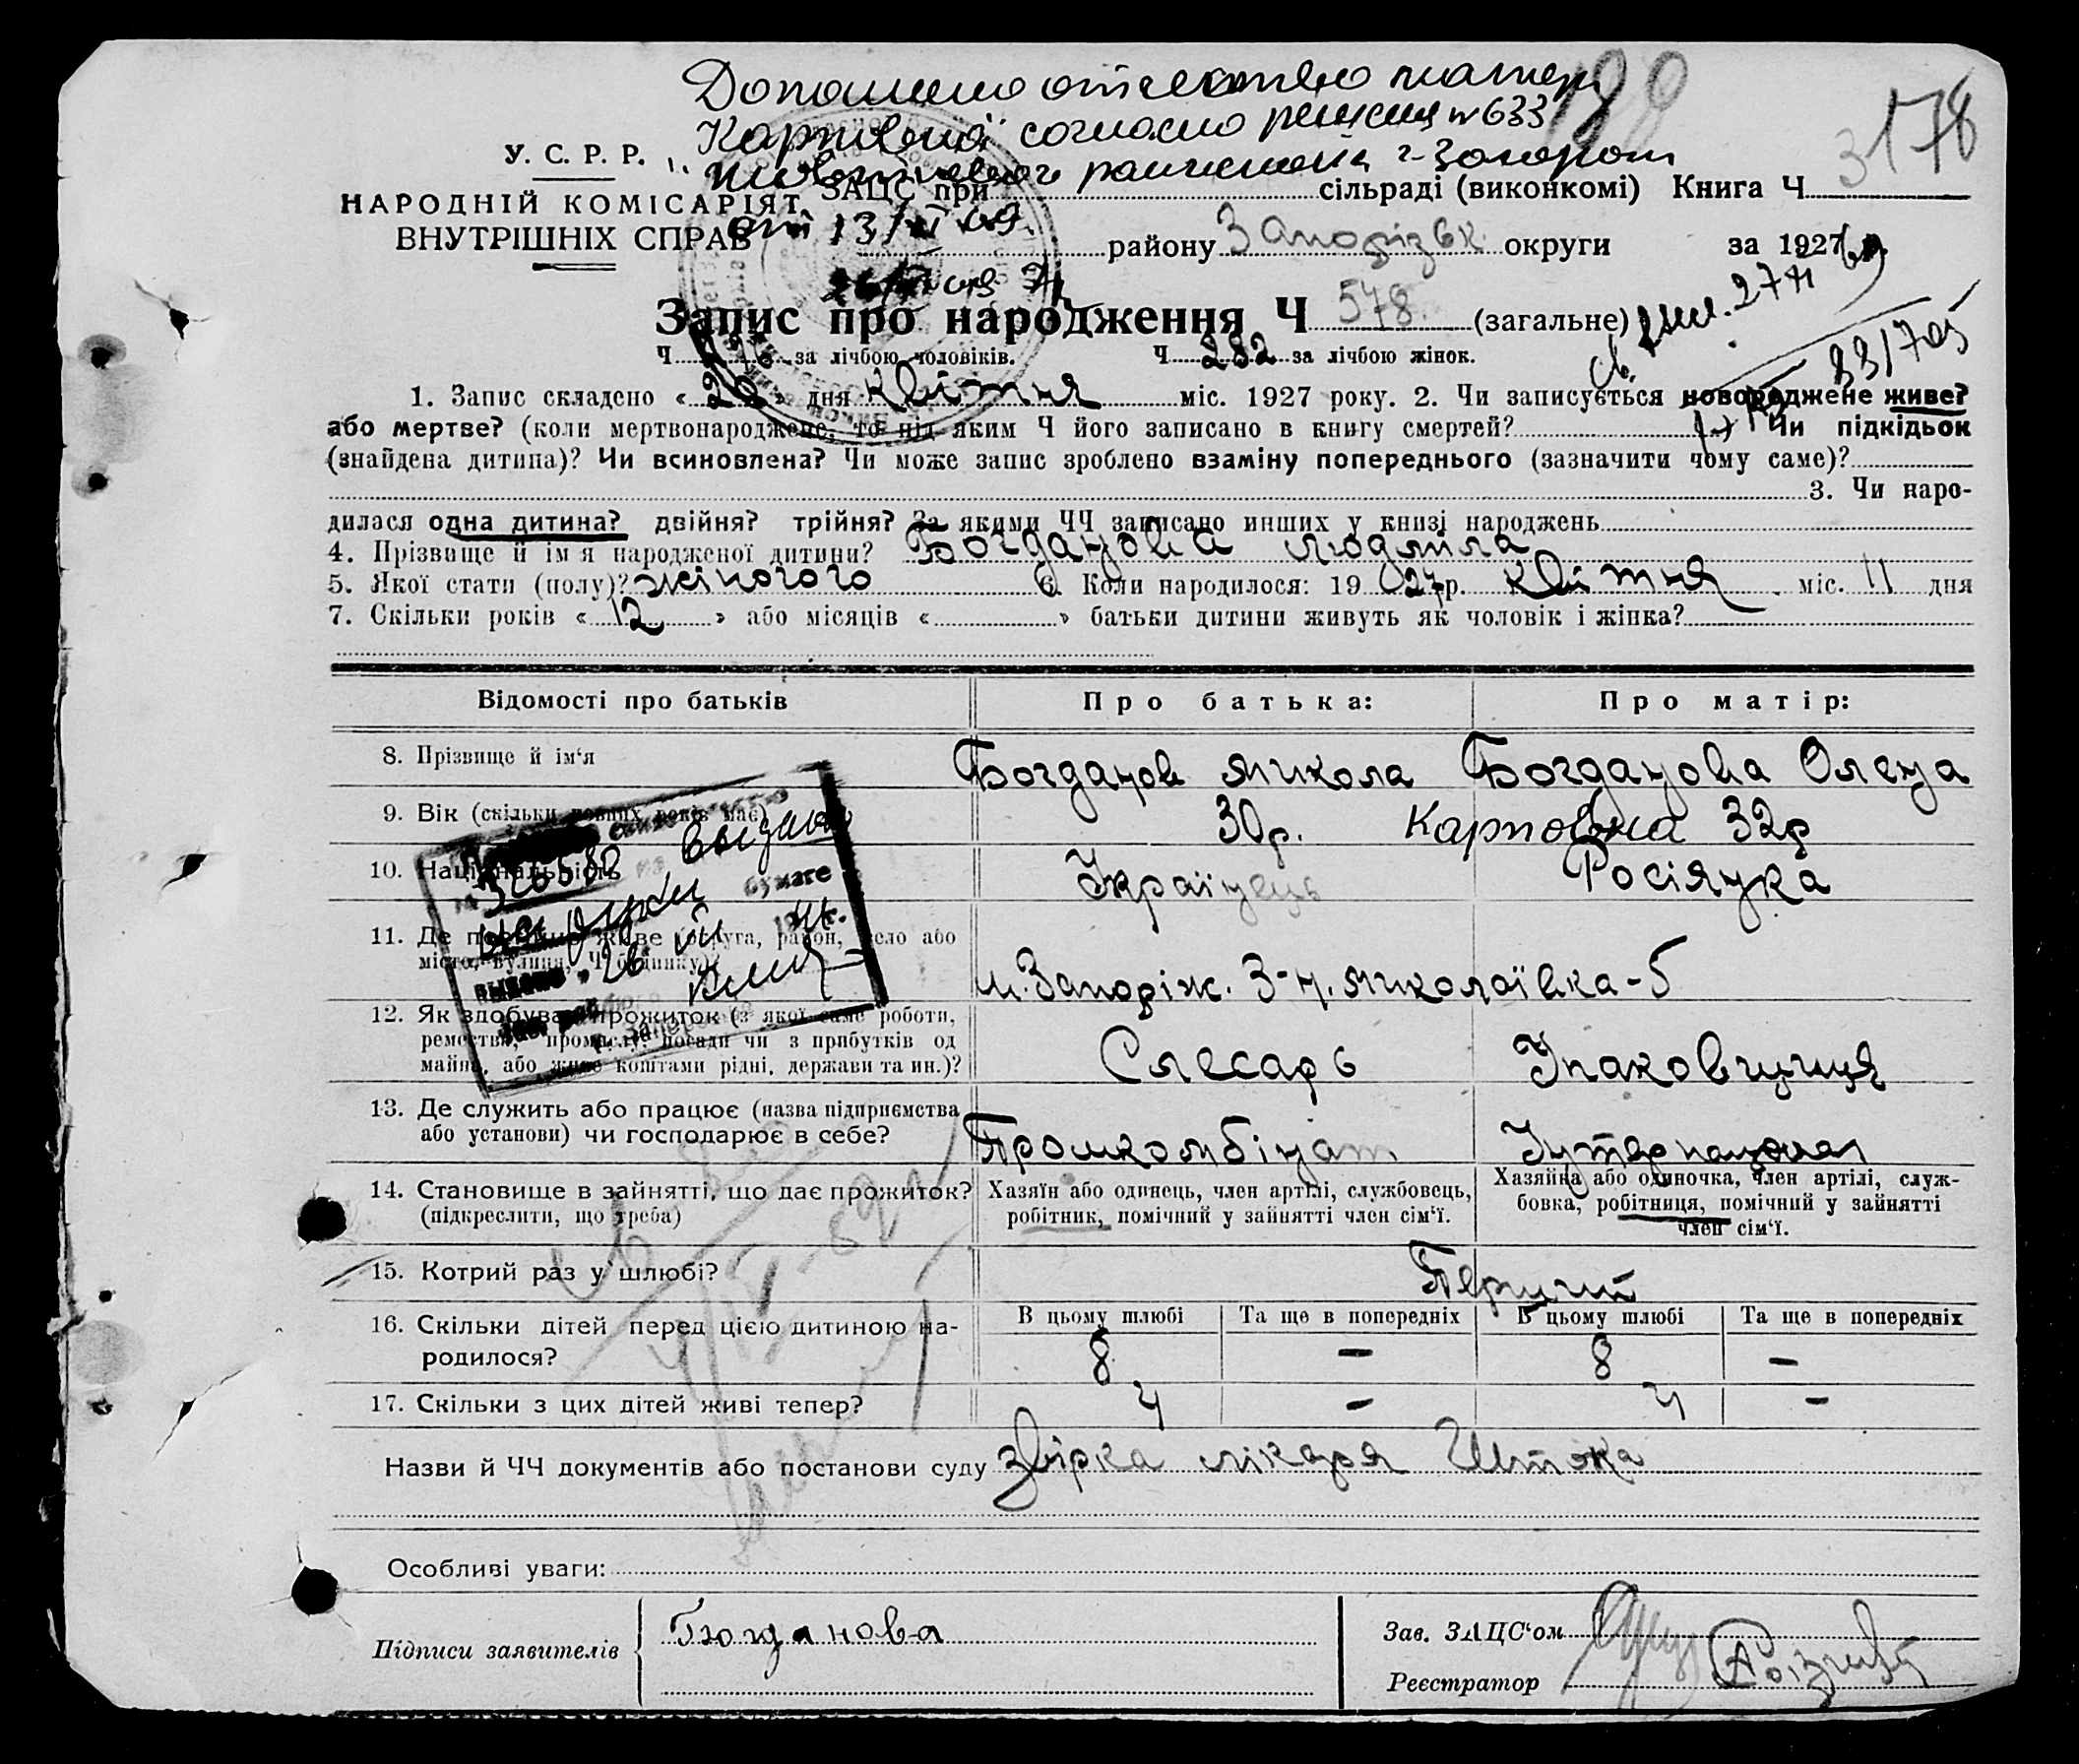 Дополнено отчество матери
"Карповна" согласно решения №633
У. С. Р. Р.
г. Запорож
3178
НАРОДНІЙ КОМІСАРІЯТ ЗАЦС при сільраді (виконкомі) Книга Ч
ВНУТРІШНІХ СПРАВ
от 13/
району Запорізьк округи за 1927 р.
Запис про народження Ч 578 (загальне)
Ч за лічбою чоловіків. Ч 282 за лічбою жінок.
1. Запис складено « 28 » дня квітня міс. 1927 року. 2. Чи записується новороджене живе?
або мертве? (коли мертвонароджене, то під яким Ч його записано в книгу смертей? ) Чи підкідьок
(знайдена дитина)? Чи всиновлена? Чи може запис зроблено взаміну попереднього (зазначити чому саме)?
3. Чи наро-
дилася одна дитина? двійня? трійня? За якими ЧЧ записано инших у книзі народжень
4. Прізвище й ім'я народженої дитини? Богданова Людміла
5. Якої стати (полу)? жіночого 6. Коли народилося: 1927 р. квітня міс. 11 дня
7. Скільки років « 12 » або місяців « » батьки дитини живуть як чоловік і жінка?
Відомості про батьків Про батька: Про матір:
8. Прізвище й ім'я Богданов Микола Богданова Олена
9. Вік (скільки повних років має) 30р. Карповна 32р
10. Національність Українець Росіянка
11. Де постійно живе (округа, район, село або
місто, вулиця, Ч будинку)? м. Запоріж. 3-н. Миколаївка-5
12. Як здобуває прожиток (з якої саме роботи,
ремества, промислу, посади чи з прибутків од
майна, або живе коштами рідні, держави та ин.)? Слесарь Упаковщиця
13. Де служить або працює (назва підприємства
або установи) чи господарює в себе? Промкомбінат Интернационал
14. Становище в зайнятті, що дає прожиток?
(підкреслити, що треба)
Хазяїн або одинець, член артілі, службовець,
робітник, помічний у зайнятті член сім'ї.
Хазяйка або одиночка, член артілі, служ-
бовка, робітниця, помічний у зайнятті
член сім'ї.
15. Котрий раз у шлюбі? Перший
16. Скільки дітей перед цією дитиною на-
родилося?
В цьому шлюбі Та ще в попередніх В цьому шлюбі Та ще в попередніх
8 — 8 —
17. Скільки з цих дітей живі тепер? 4 — 4 —
Назви й ЧЧ документів або постанови суду звірка лікаря Штока
Особливі уваги:
Підписи заявителів Богданова
Зав. ЗАЦС'ом
Реєстратор